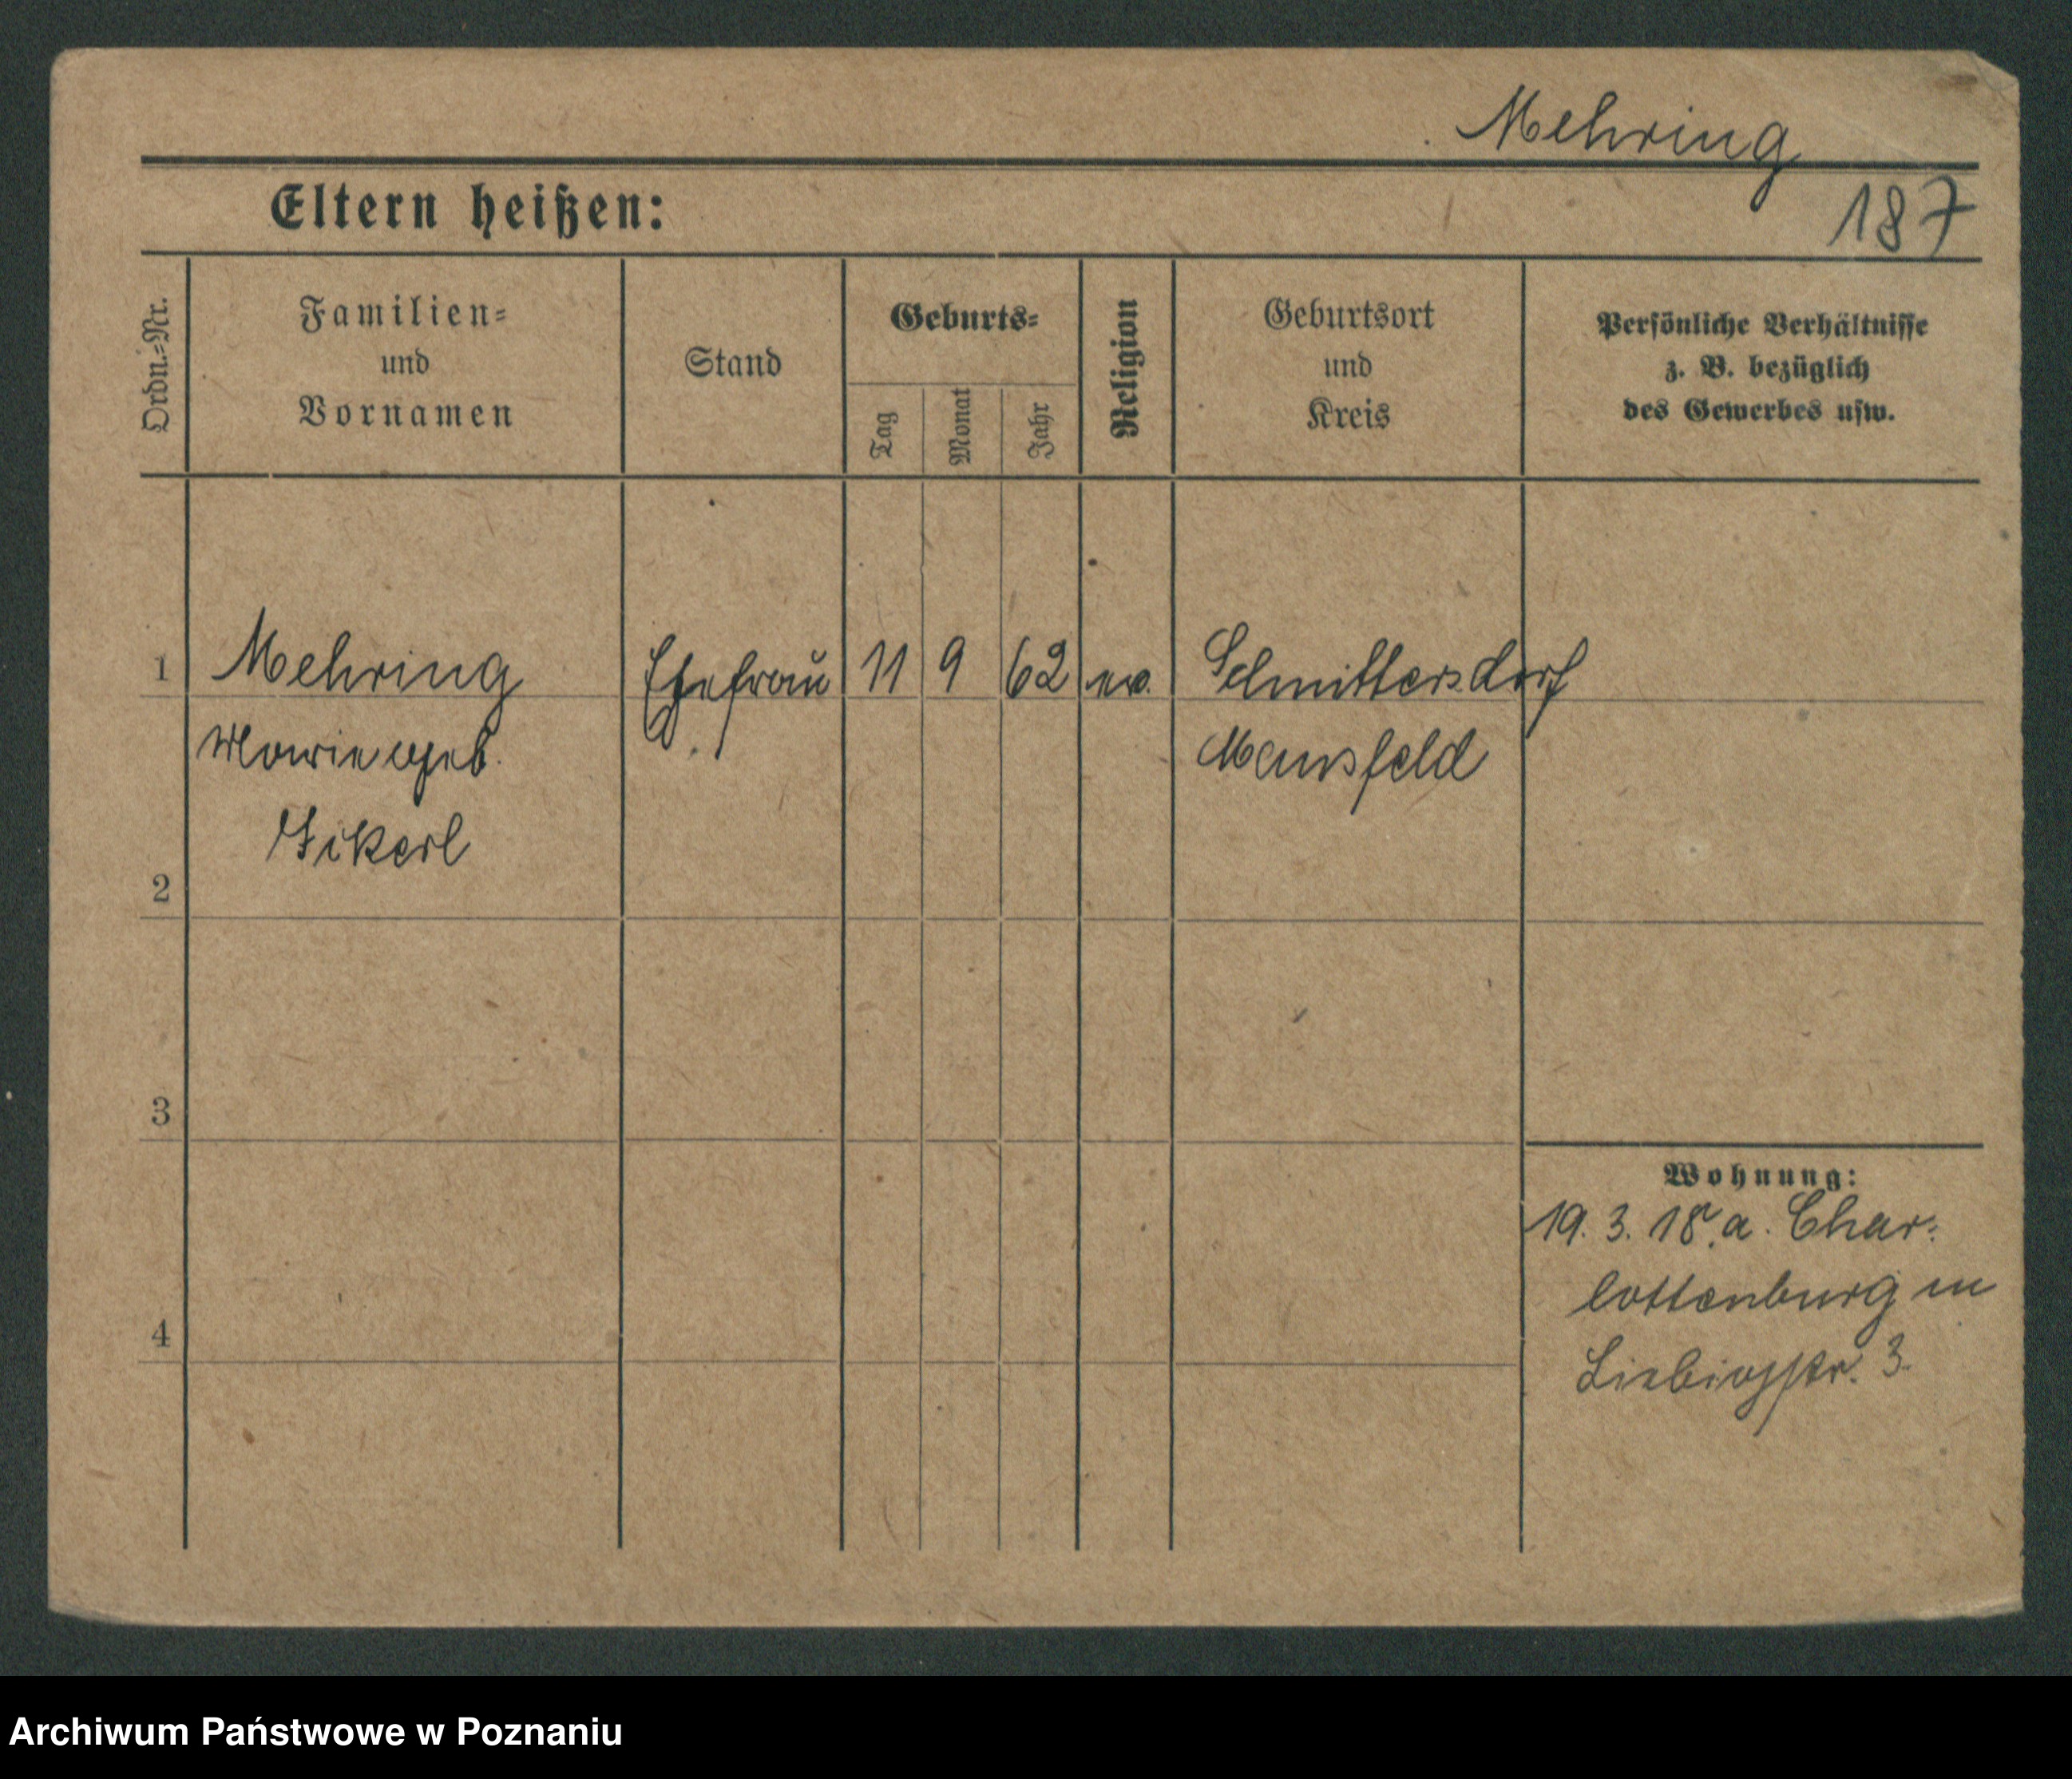 Mehring
187
Eltern heißen:
Ordn.-Nr.
Familien-
und
Vornamen
Stand
Geburts-
Tag
Monat
Jahr
Religion
Geburtsort
und
Kreis
Persönliche Verhältnisse
z. B. bezüglich
des Gewerbes usw.
1 Mehring Ehefrau 11 9 62 ev. Schmittersdorf
Marie geb. Mansfeld
2
3
4
Wohnung:
19. 3. 18. a. Char-
lottenburg in
Liebigstr. 3.
Archiwum Państwowe w Poznaniu